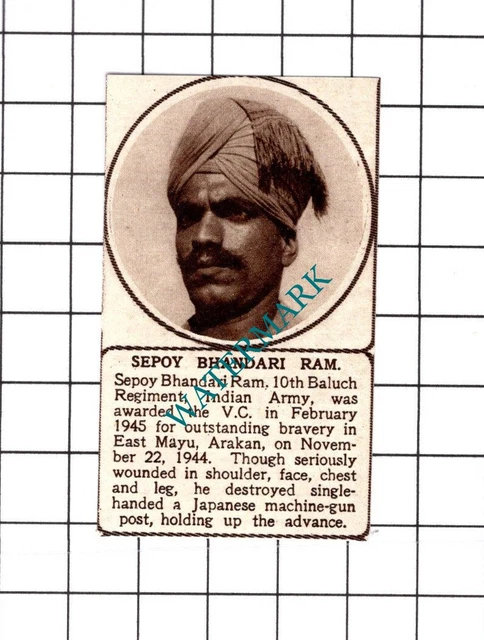 SEPOY BHANDARI RAM.
Sepoy Bhandari Ram, 10th Baluch
Regiment, Indian Army, was
awarded the V.C. in February
1945 for outstanding bravery in
East Mayu, Arakan, on Novem-
ber 22, 1944. Though seriously
wounded in shoulder, face, chest
and leg, he destroyed single-
handed a Japanese machine-gun
post, holding up the advance.
WATERMARK